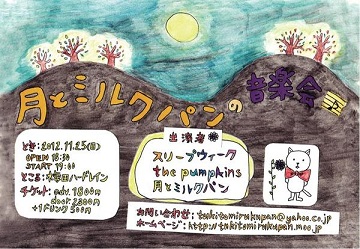 月とミルクパンの音楽会
とき: 2012.11.25(日)
OPEN 18:30
START 19:00
ところ: 梅田ハードレイン
チケット: adv. 1800円
door 2300円
+1ドリンク 500円
出演者
スリープウィーク
the pumpkins
月とミルクパン
お問い合わせ: tukitomirukupan@yahoo.co.jp
ホームページ: http://tukitomirukupan.moo.jp